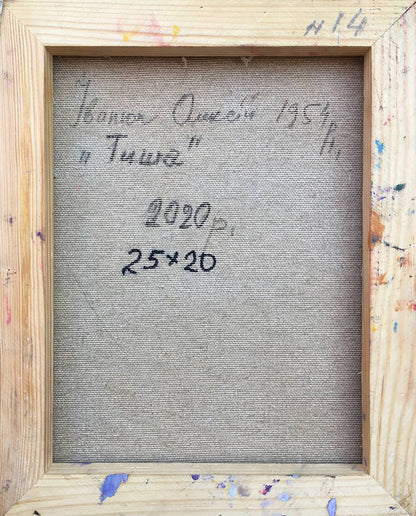 N 14
Іванюк Олексій 1954
р.н.
„Тиша"
2020р.
25×20